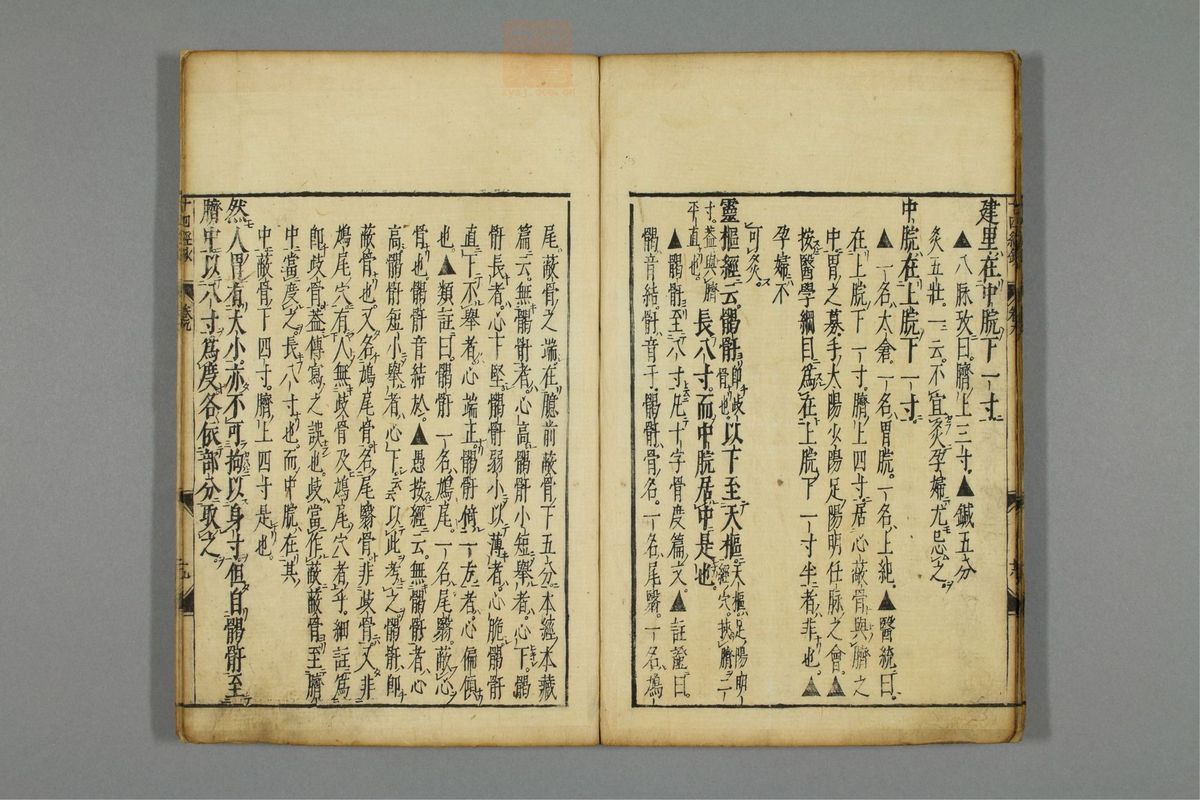 建里在中脘下一寸
▲八脉攷曰。臍上三寸。▲鍼五分
灸五壯。一云。不宜灸。孕婦尤忌之。
中脘在上脘下一寸。
▲一名太倉。一名胃脘。一名上紀。▲醫統曰。
在上脘下一寸。臍上四寸。居心蔽骨與臍之
中。胃之募。手太陽少陽足陽明任脉之會。▲
按醫學綱目爲在上脘下一寸半者非也。▲
孕婦不
可灸。
靈樞經云。髑骬即歧骨也。以下至天樞。天樞足陽明經穴。挾臍二
寸。蓋與臍平直也。長八寸。而中脘居中是也。
▲髑骬至八寸。凡十字骨度篇文。▲註證曰。
髑音結。骬音于。髑骬。骨名。一名尾翳。一名鳩
尾。蔽骨之端。在臆前蔽骨下五分。本經本藏
篇云。無髑骬者。心高。髑骬小短舉者。心下。髑
骬長者。心下堅。髑骬弱小以薄者。心脆。髑骬
直下不舉者。心端正。髑骬倚一方者。心偏傾
也。▲類註曰。髑骬一名鳩尾。一名尾翳。蔽心
骨也。髑骬音結於。▲愚按經云。無髑骬者。心
高。髑骬短小舉者。心下。云云以此考之。髑骬。即
蔽骨也。又名鳩尾骨。名尾翳骨。非歧骨。又非
鳩尾穴。有人無歧骨及鳩尾穴者乎。細註爲
即歧骨。蓋傳寫之誤也。歧當作蔽。蔽骨至臍
中。當度之。長八寸也。而中脘在其
中。蔽骨下四寸。臍上四寸是也。
然人胃有大小。亦不可拘以身寸。但自髑骬至
臍中。以八寸爲度。各依部分取之。